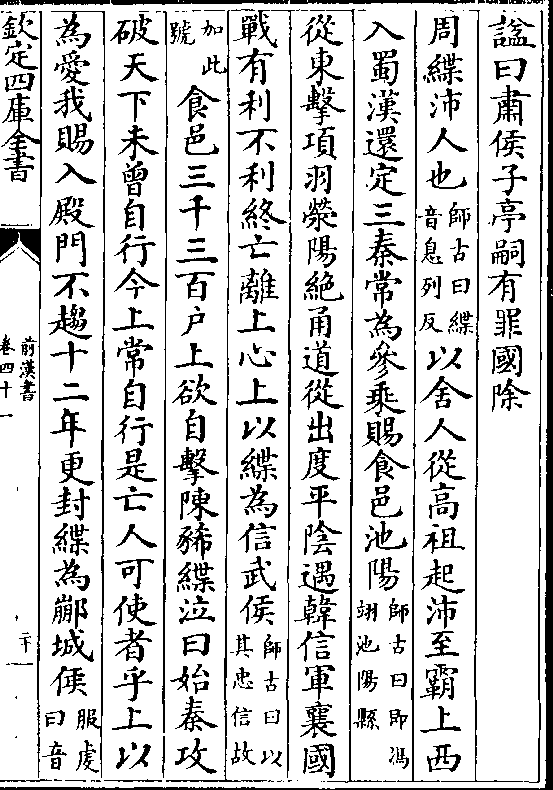 諡曰肅侯子亭嗣有罪國除
周緤沛人也師古曰緤音息列反以舍人從高祖起沛至霸上西
入蜀漢還定三秦常為參乘賜食邑池陽師古曰即馮翊池陽縣
從東擊項羽滎陽絶甬道從出度平陰遇韓信軍襄國
戰有利不利終亡離上心上以緤為信武侯師古曰以其忠信故
加此號食邑三千三百户上欲自擊陳豨緤泣曰始秦攻
破天下未曾自行今上常自行是亡人可使者乎上以
為愛我賜入殿門不趨十二年更封緤為䣙城侯服虔曰音
欽定四庫全書
前漢書
卷四十一
二十